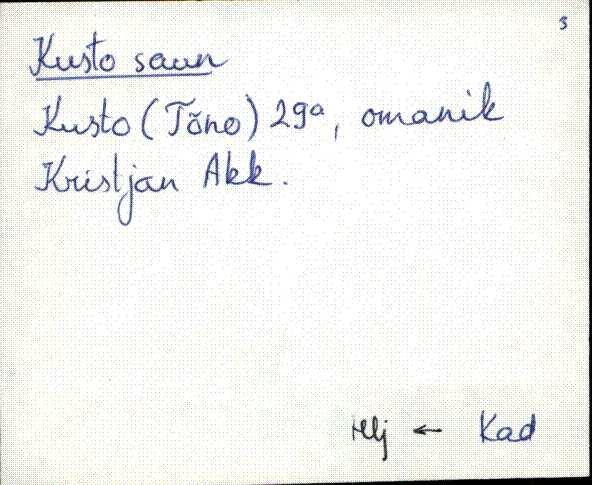 3
Kusto saun
Kusto (Tõno) 29a, omanik
Kristjan Akk.
Hlj ← Kad